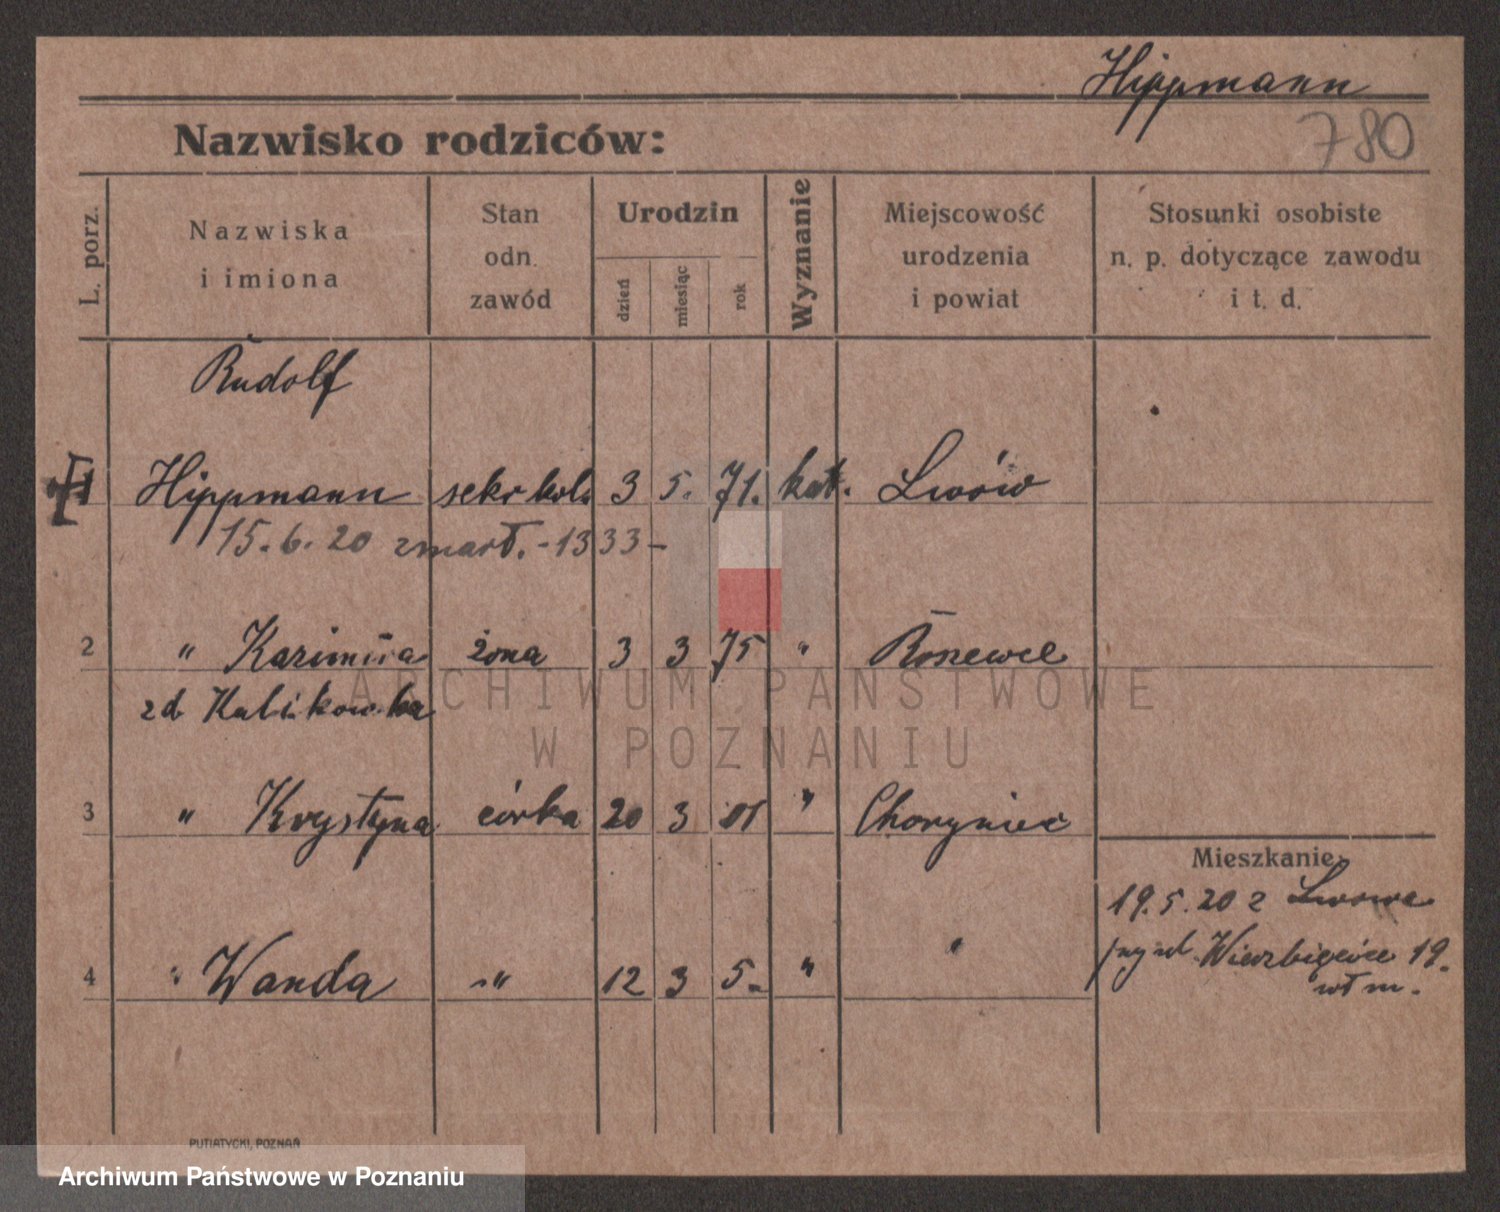 Hippmann
Nazwisko rodziców: 780
L. porz.
Nazwiska i imiona
Stan odn. zawód
Urodzin
dzień miesiąc rok
Wyznanie
Miejscowość urodzenia i powiat
Stosunki osobiste n. p. dotyczące zawodu i t. d.
Rudolf
1 Hippmann sekr kol. 3 5. 71. kat. Lwów
15.6.20 zmarł. - 1333 -
2 " Kazimira żona 3 3 75 "
zd
3 " Krystyna córka 20 3 01 " Choryniec
Mieszkanie
19.5.20 z Lwowa
Wierzbięcice 19.
4 " Wanda " 12 3 5. " "
wł m.
ARCHIWUM PAŃSTWOWE
W POZNANIU
PUTIATYCKI, POZNAŃ
Archiwum Państwowe w Poznaniu